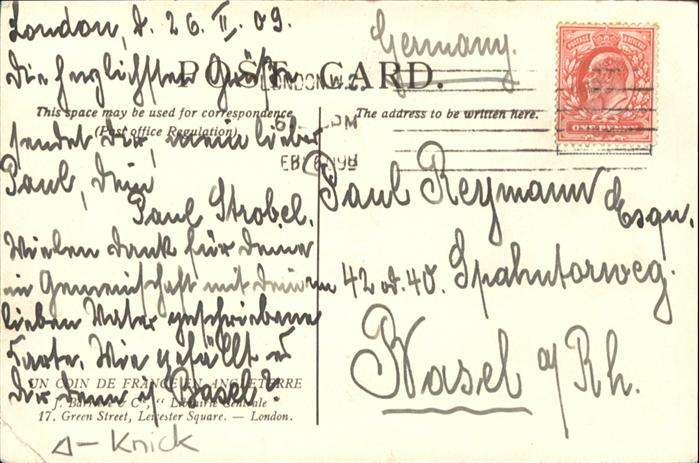 London, d. 26. II. 09.
die herzlichsten Grüße
POST CARD.
Germany.
LONDON.W.C
This space may be used for correspondence
(Post office Regulation)
The address to be written here.
PM
FEB 26 09
ONE PENNY
sendet dir, mein lieber
Paul, dein
Paul Strobel.
Vielen Dank für deine
in Gemeinschaft mit deinem
lieben Vater geschriebene
Karte. Wie gefällt es
dir denn in Basel?
Paul Reymann Esqu.
42 od. 40. Spahntorweg.
Basel a/Rh.
UN COIN DE FRANCE EN ANGLETERRE
J. & Co, "Librairie Centrale
17. Green Street, Leicester Square. — London.
Δ-Knick